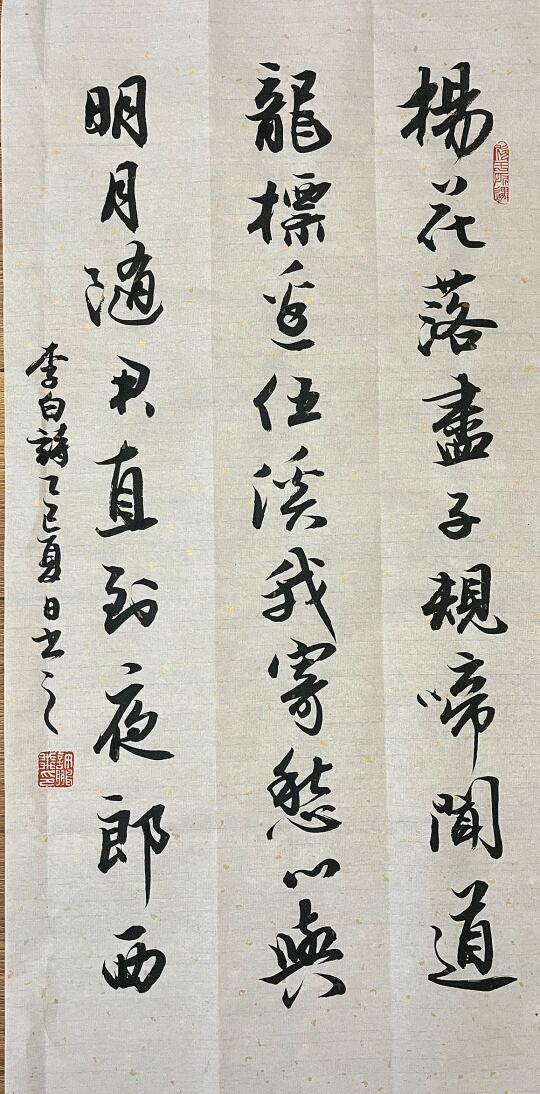 楊花落盡子規啼聞道
龍標過伍溪我寄愁心與
明月隨君直到夜郎西
李白詩乙巳夏日书之